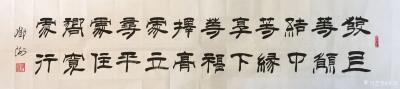 發上
等願
結中
等緣
享下
等福
擇高
處立
尋平
處住
嚮寬
處行